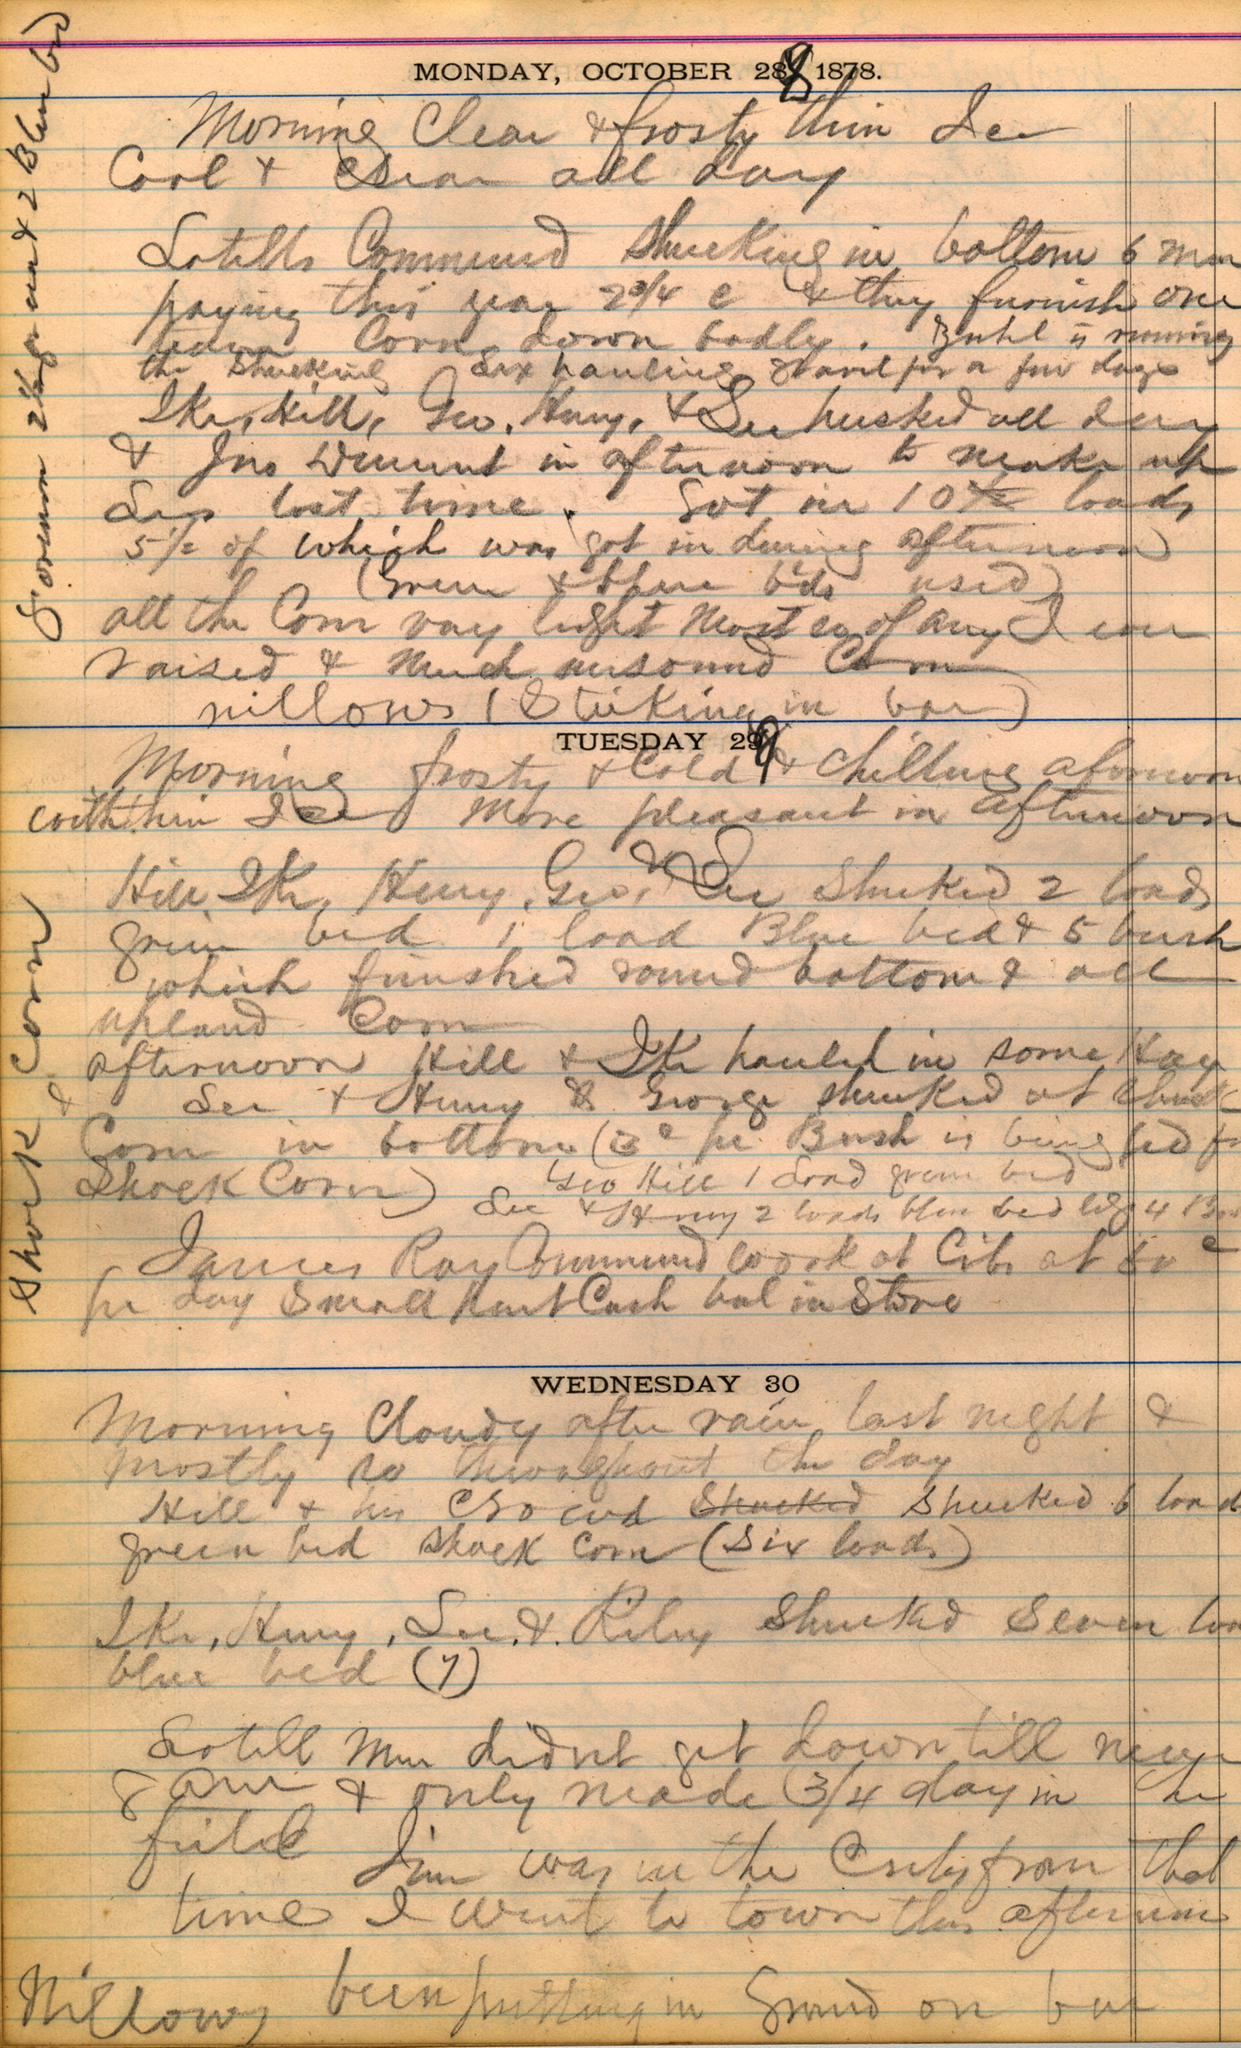 MONDAY, OCTOBER 28, 1878.
Morning Clear & frosty thin Ice
Cool & Clear all day
Lotells Commencd Shucking in bottom 6 men
paying this year 2 3/4 c & they furnish one
team Corn down badly. Buhl is running
the Shucking Sax hauling gravel for a few days
Ike, Hill, Geo, Henry, & Lee husked all day
& Jno in afternoon to make up
Lees lost time. Got in 10 loads
5 1/2 of which was got in during afternoon
(Green & blue bds used)
all the Corn very light most so of any I ever
raised & much unsound Corn
willows (Sticking in bar)
TUESDAY 29
Morning frosty & Cold & chilling afornoon
with thin Ice More pleasant in afternoon
Hill, Ike, Henry, Geo, & Lee Shucked 2 loads
green bed 1 load Blue bed & 5 bush
which finished round bottom & all
upland Corn
afternoon Hill & Ike hauled in some Hay
& Lee & Henry & George shucked at Shock
Corn in bottom (3c pr Bush is being pd for
Shock Corn) Geo Hill 1 Load green bed
Lee & Henry 2 loads blue bed
James Ray Commencd work at Cribs at 60 c
pr day Small part Cash bal in Store
Shock Corn
WEDNESDAY 30
Morning Cloudy after rain last night &
mostly so throughout the day
Hill & his Crowd Shucked Shucked 6 load
green bed Shock Corn (Six loads)
Ike, Henry, Lee, & Riley Shucked Seven loa
blue bed (7)
Lotell Men didnt get down till nigh
9 am & only made 3/4 day in the
field Jim was in the Cribs from that
time I went to town this afternoon
Willows been putting in Ground on bar